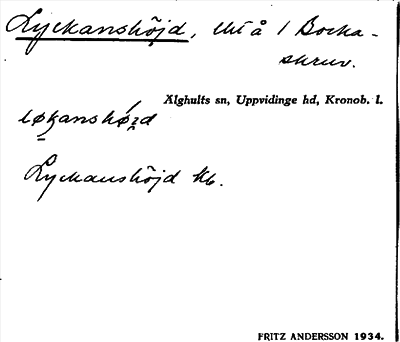 Lyckanshöjd, utå / Bocka-
skruv.
Älghults sn, Uppvidinge hd, Kronob. l.
Lyckanshöjd kb.
FRITZ ANDERSSON 1934.